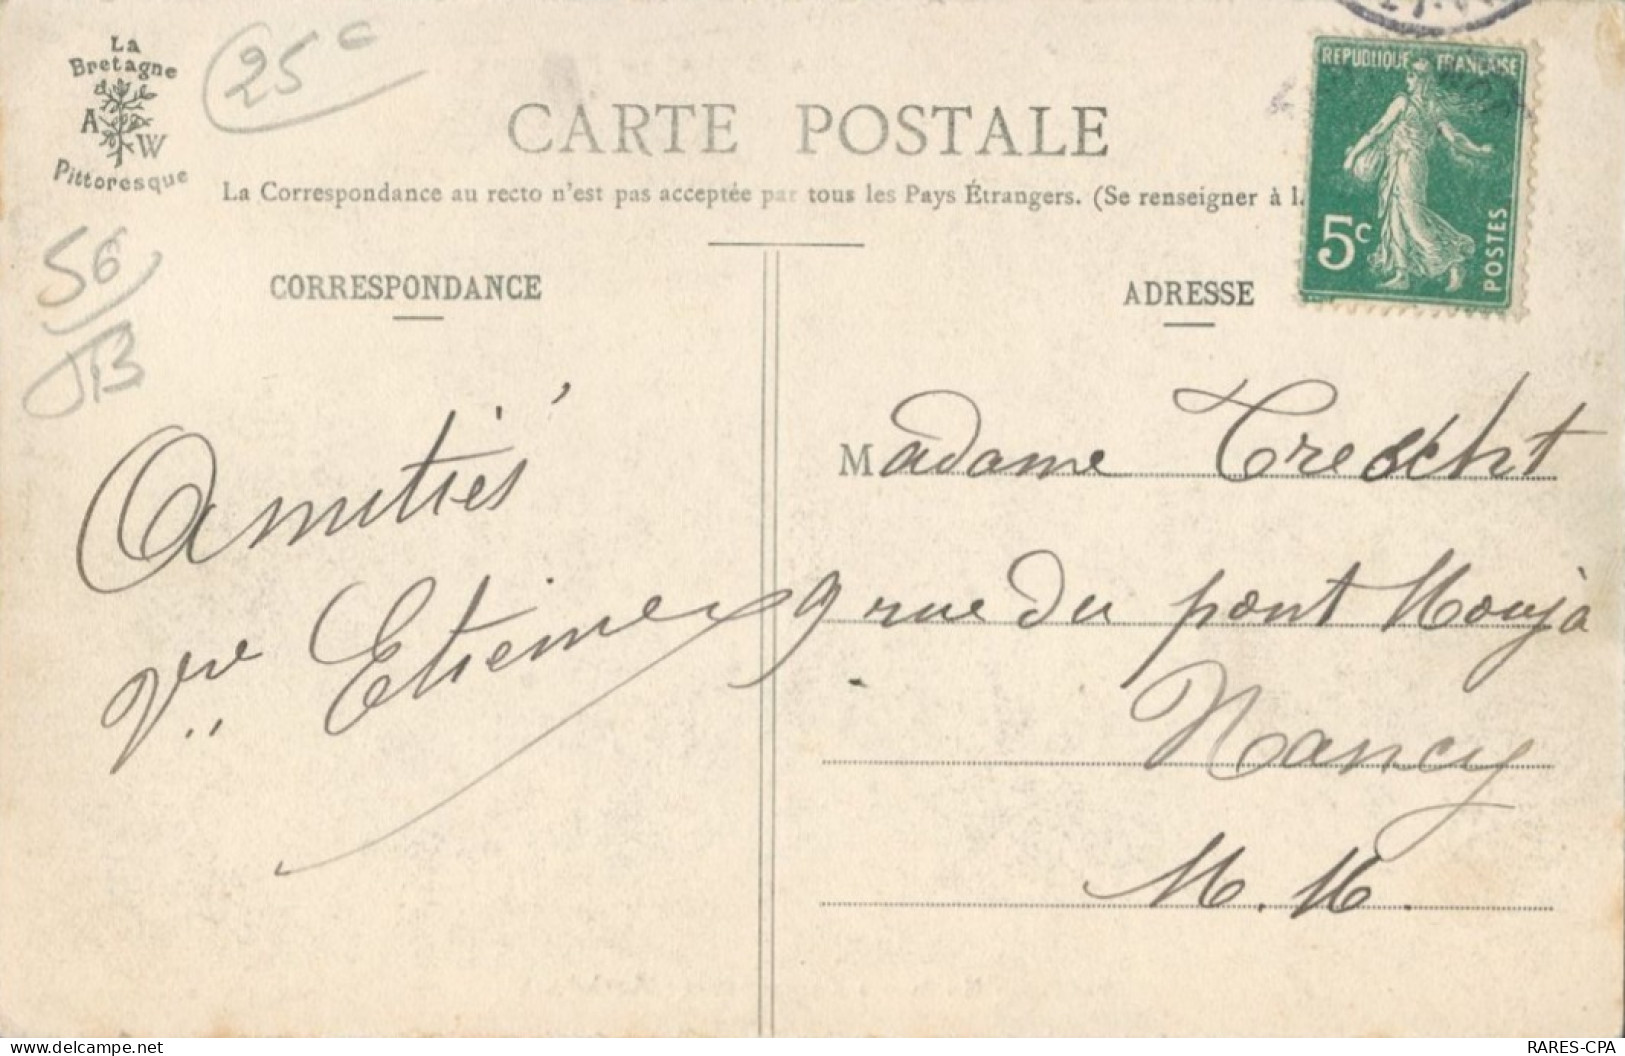 La
Bretagne
A W
Pittoresque
25 c
CARTE POSTALE
La Correspondance au recto n'est pas acceptée par tous les Pays Étrangers. (Se renseigner à l
REPUBLIQUE FRANÇAISE
5c
POSTES
56
JB
CORRESPONDANCE
ADRESSE
Amitiés
Vve Etienne
Madame Trescht
9 rue du pont Mouja
Nancy
M. M.
www.delcampe.net
RARES-CPA